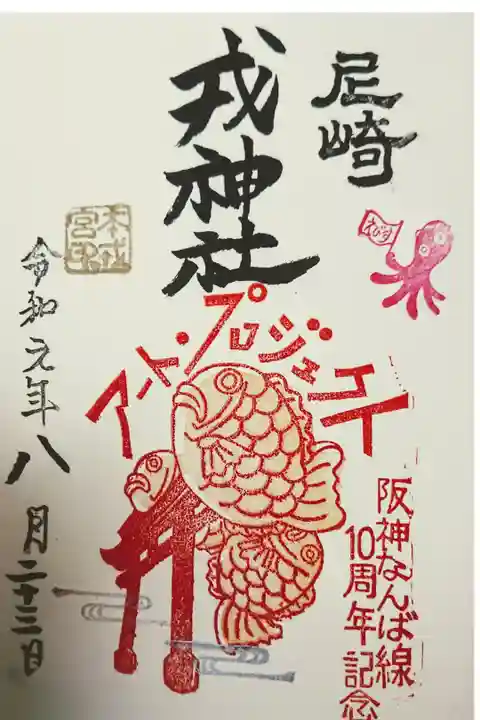 尼崎
戎神社
えびす
アート・プロジェクト
阪神なんば線
10周年記念
令和元年八月二十三日